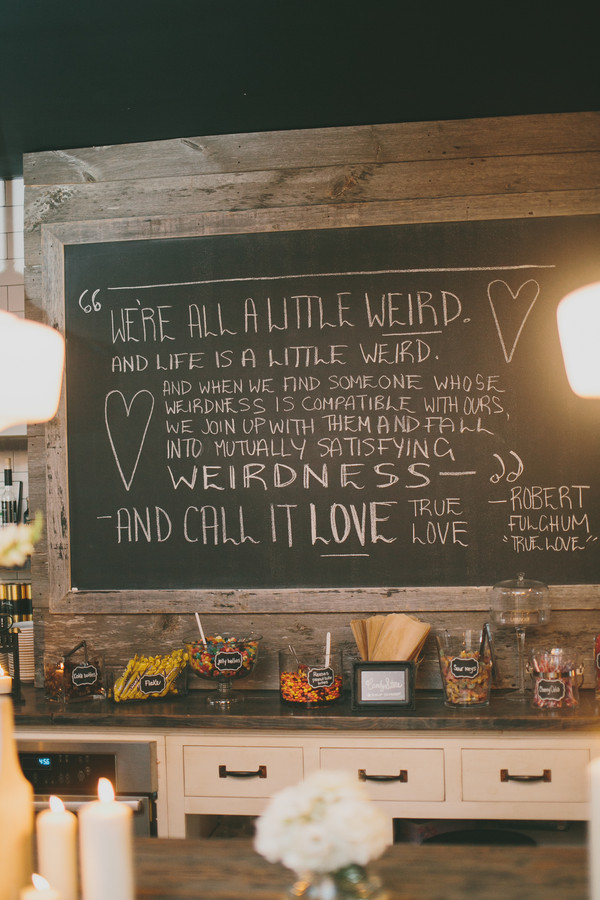 “ WE'RE ALL A LITTLE WEIRD.
AND LIFE IS A LITTLE WEIRD.
AND WHEN WE FIND SOMEONE WHOSE
WEIRDNESS IS COMPATIBLE WITH OURS,
WE JOIN UP WITH THEM AND FALL
INTO MUTUALLY SATISFYING
WEIRDNESS— ”
-AND CALL IT LOVE TRUE
LOVE
-ROBERT
FULGHUM
"TRUE LOVE"
jelly bellies
Sour keys
Flake
Reese's
4:56